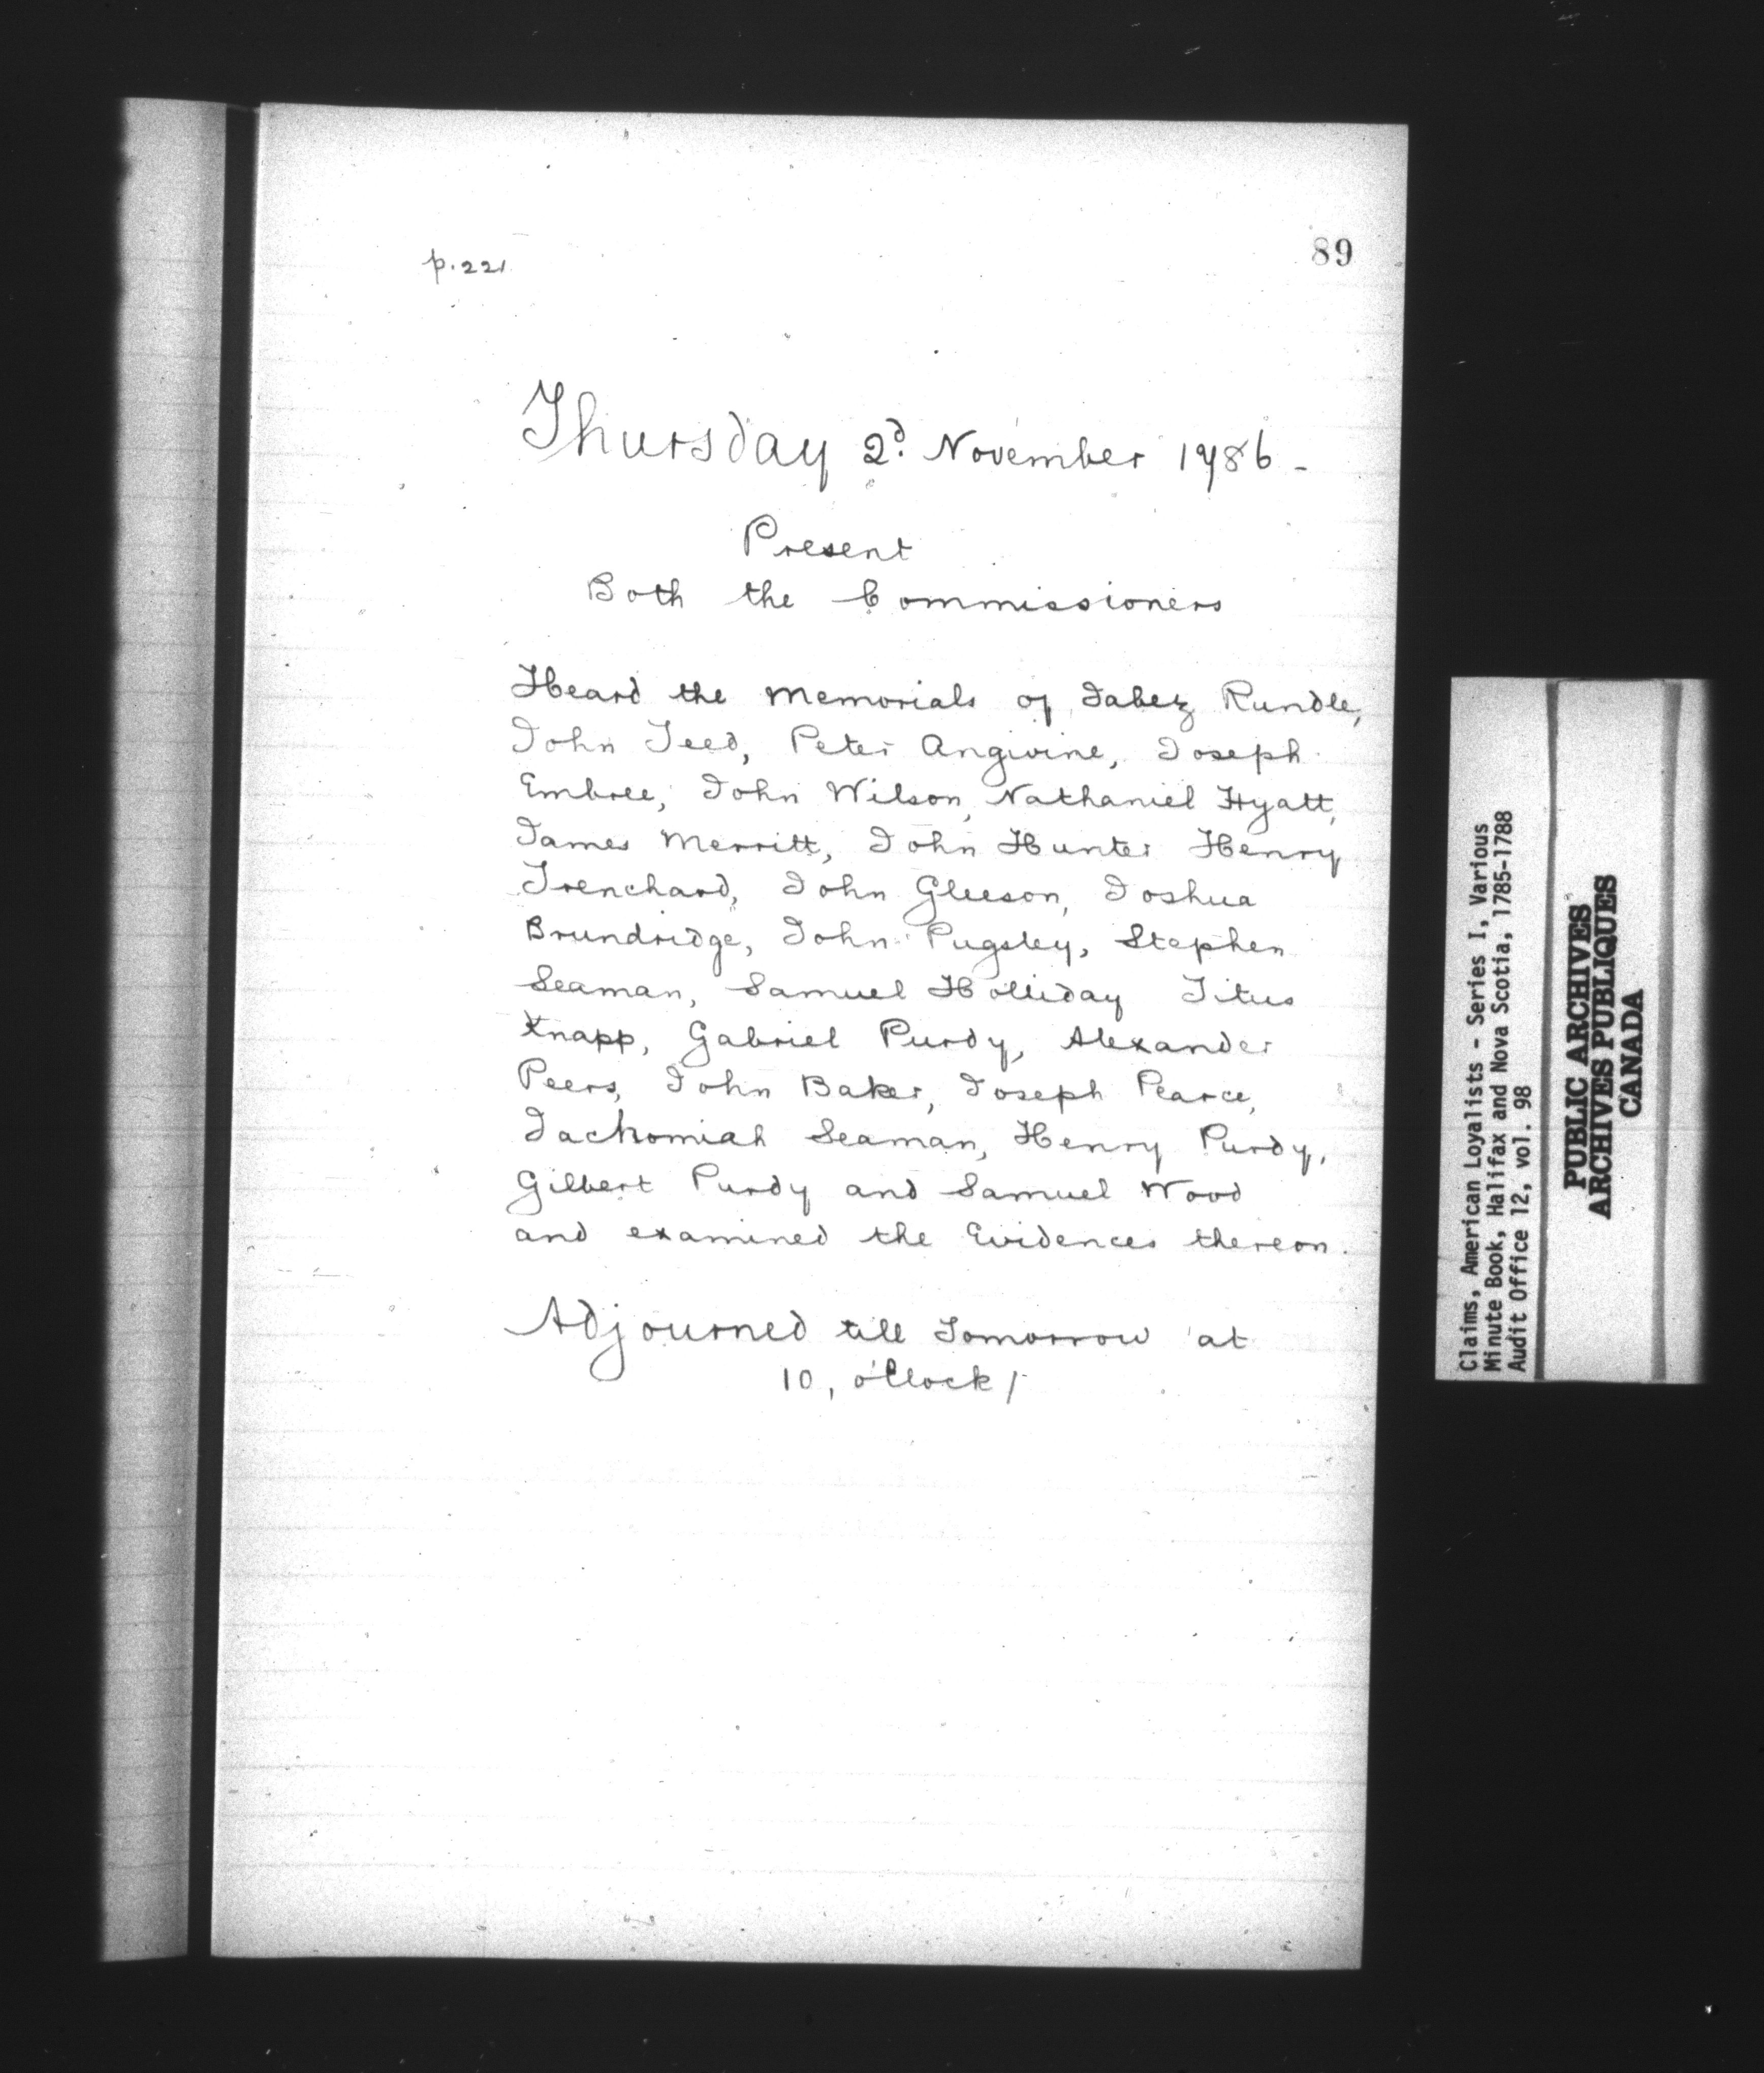 p. 221
89
Thursday 2d. November 1786 -
Present
Both the Commissioners
Heard the Memorials of Jabez Rundle,
John Teed, Peter Angivine, Joseph
Embree, John Wilson, Nathaniel Hyatt,
James Merritt, John Hunter Henry
Trenchard, John Gleeson, Joshua
Brundridge, John Pugsley, Stephen
Seaman, Samuel Holliday Titus
Knapp, Gabriel Purdy, Alexander
Peers, John Baker, Joseph Pearce,
Jachomiah Seaman, Henry Purdy,
Gilbert Purdy and Samuel Wood
and examined the Evidences thereon.
Adjourned till Tomorrow at
10, o'Clock /
Claims, American Loyalists - Series I, Various
Minute Book, Halifax and Nova Scotia, 1785-1788
Audit Office 12, vol. 98
PUBLIC ARCHIVES
ARCHIVES PUBLIQUES
CANADA